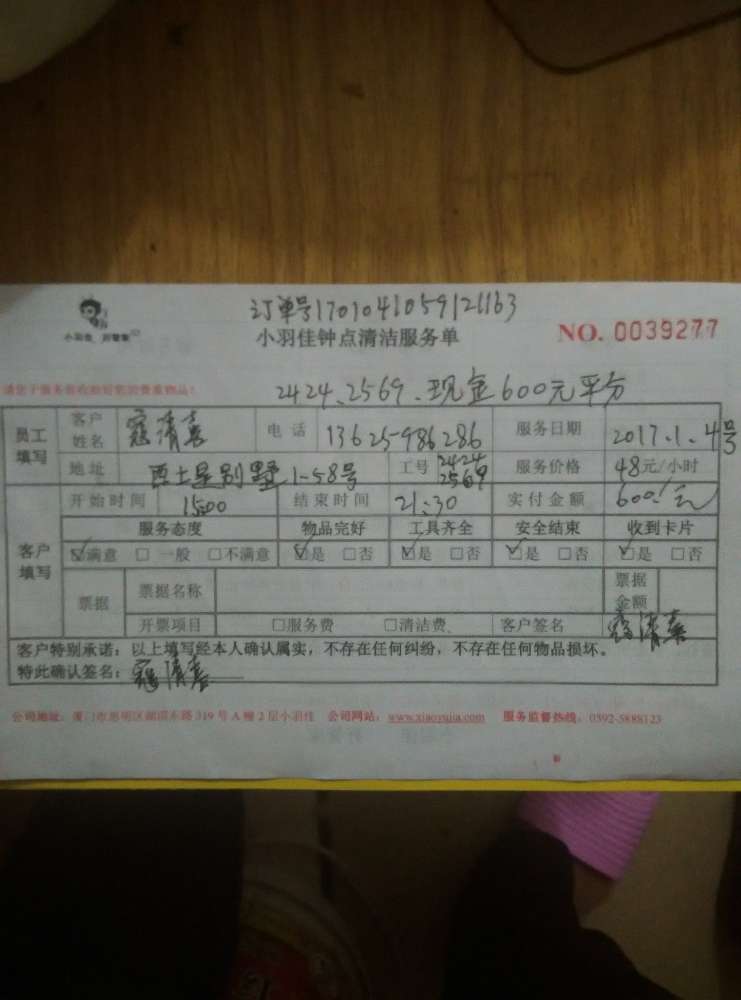 订单号1701041059121163
小羽佳 好管家
小羽佳钟点清洁服务单
NO. 0039277
请您于服务前收拾好您的贵重物品!
2424、2569、现金600元平分
员工填写 客户姓名 寇清喜 电话 13625986286 服务日期 2017.1.4号
地址 西土星别墅1-58号 工号 2424 2569 服务价格 48元/小时
开始时间 15:00 结束时间 21:30 实付金额 600元
客户填写 服务态度 物品完好 工具齐全 安全结束 收到卡片
☑满意 □一般 □不满意 ☑是 □否 ☑是 □否 ☑是 □否 ☑是 □否
票据 票据名称 票据金额
开票项目 □服务费 □清洁费、 客户签名 寇清喜
客户特别承诺:以上填写经本人确认属实,不存在任何纠纷,不存在任何物品损坏。
特此确认签名:寇清喜
公司地址:厦门市思明区湖滨东路319号A幢2层小羽佳 公司网站:www.xiaoyujia.com 服务监督热线:0592-5888123